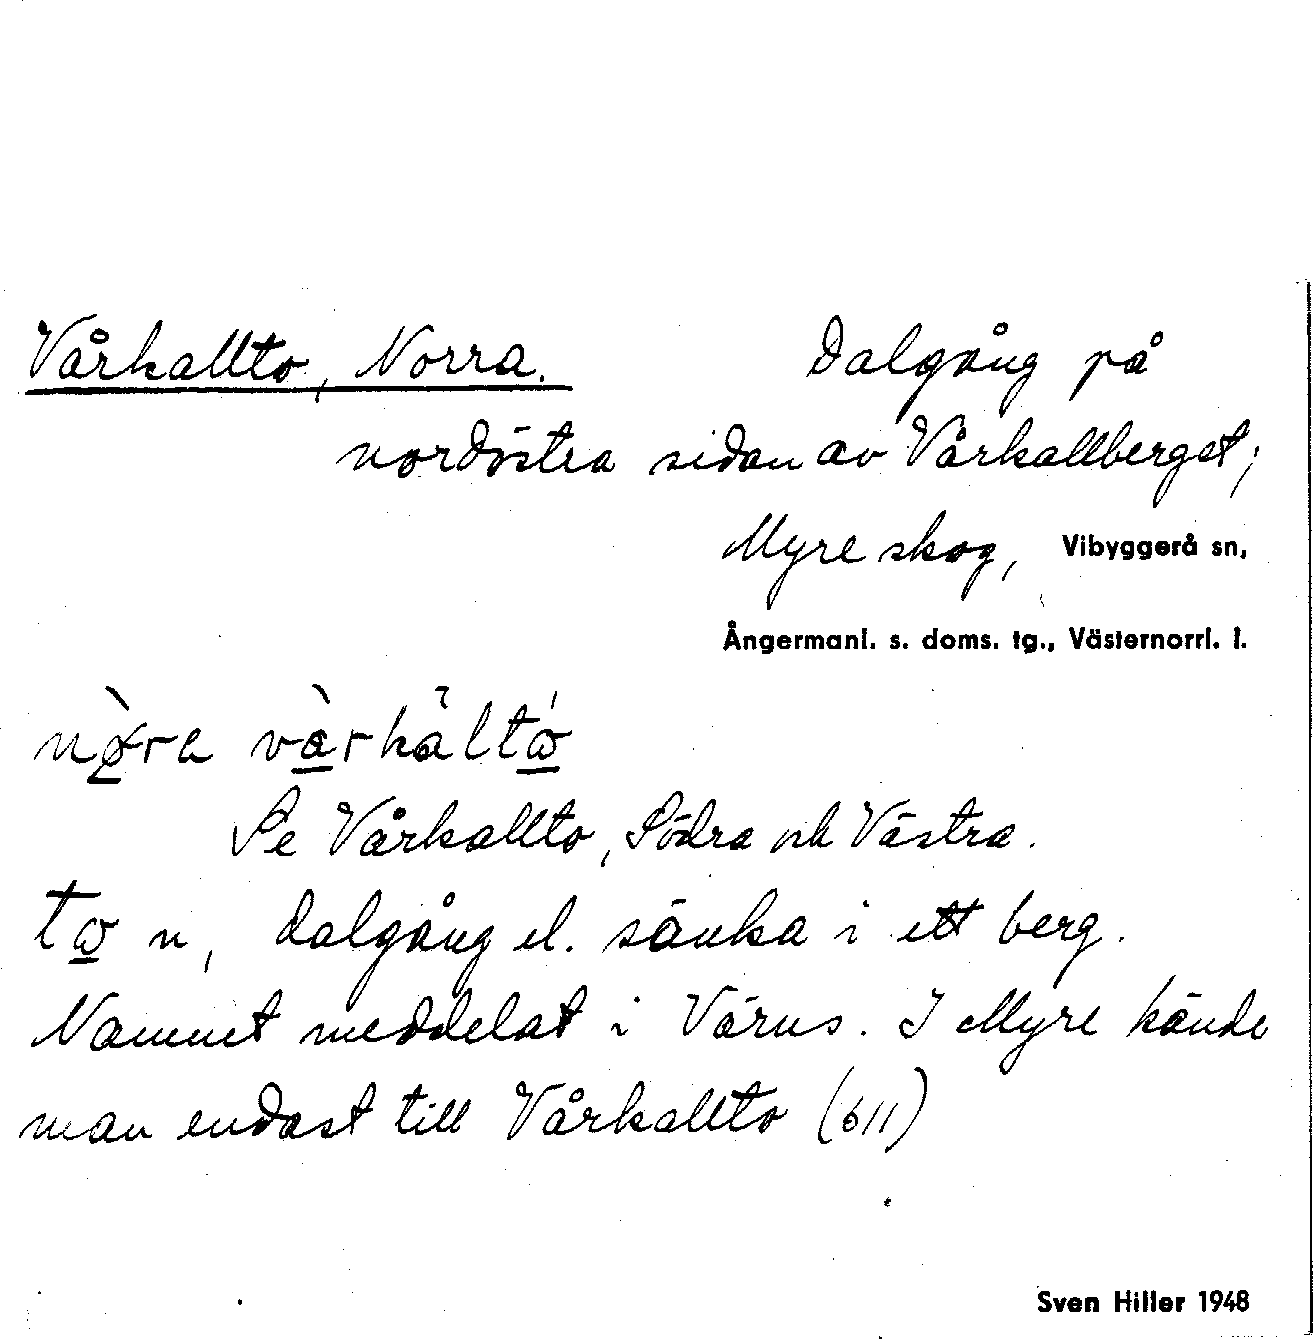 Vårkallto, Norra. Dalgång på
nordöstra sidan av Vårkallberget;
Myre skog, Vibyggerå sn,
Ångermanl. s. doms. tg., Västernorrl. l.
Se Vårkallto, Södra och Västra.
n, dalgång el. sänka i ett berg.
Namnet meddelat i Värns. I Myre kände
man endast till Vårkallto (611)
Sven Hiller 1948